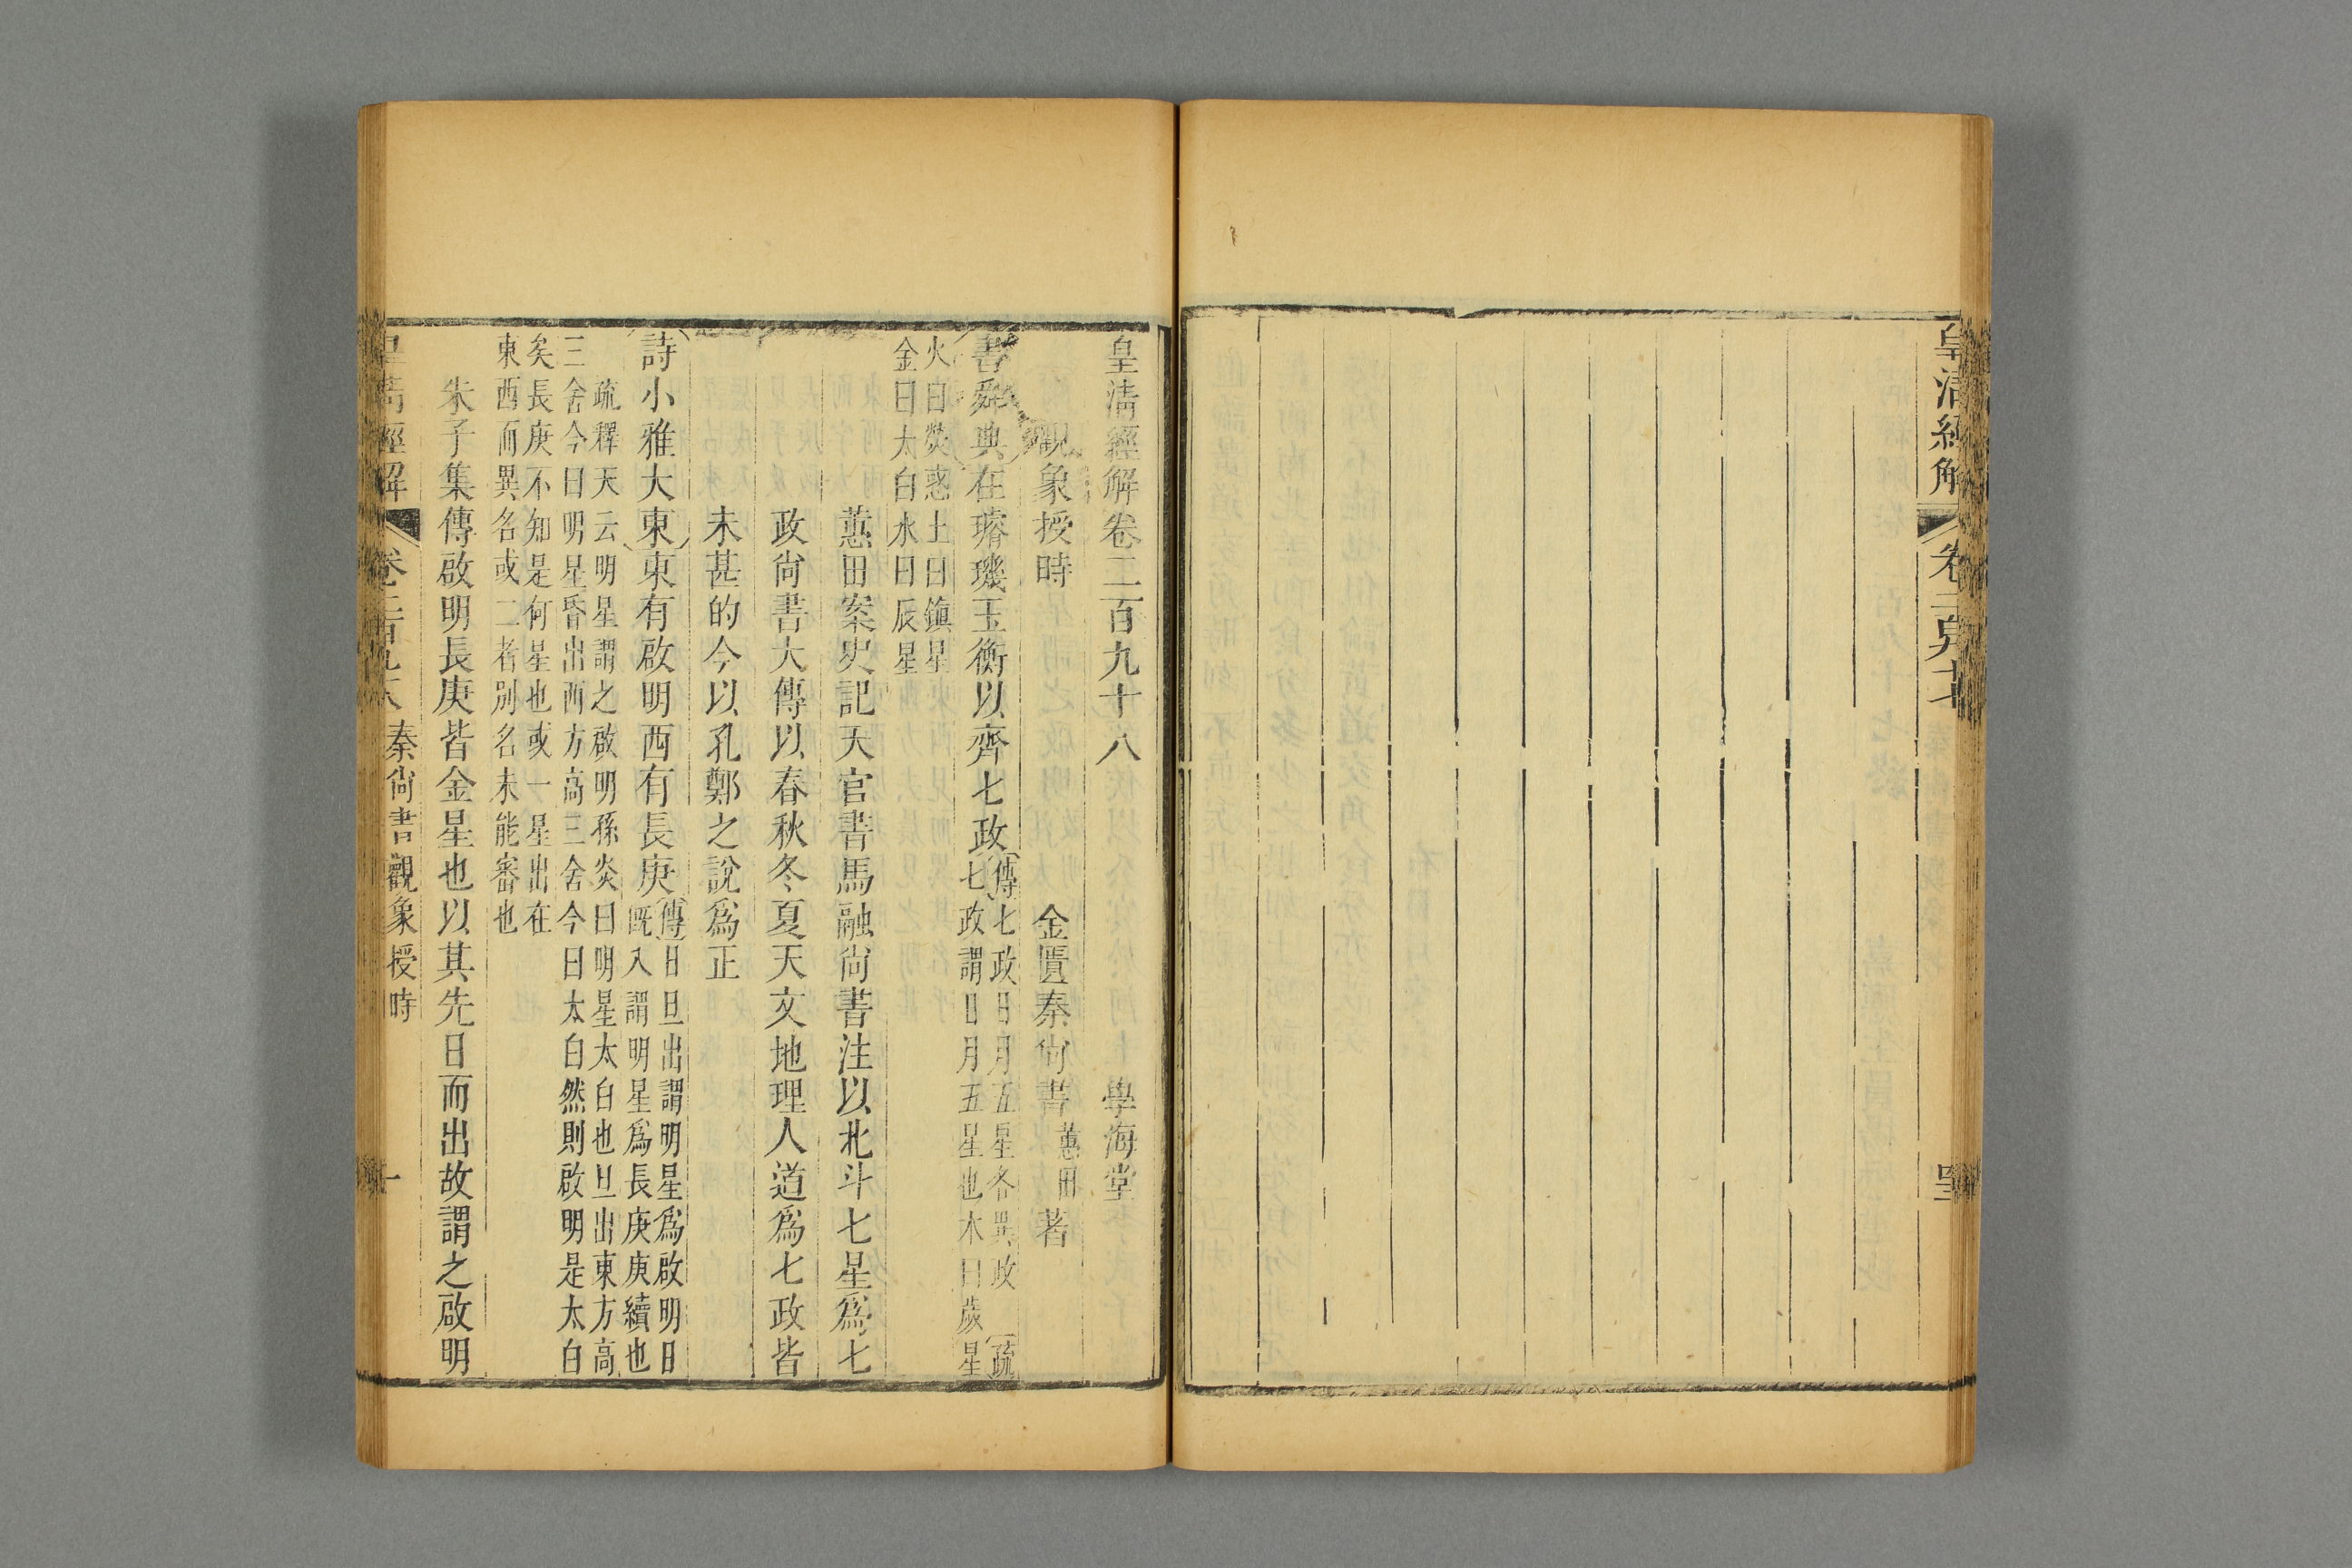 皇清經解
皇清經解卷二百九十八 學海堂
觀象授時 金匱秦尚書蕙田著
書舜典在璿璣玉衡以齊七政傳七政日月五星各異政 疏
七政謂日月五星也木曰歲星
火曰熒惑土曰鎮星
金曰太白水曰辰星
蕙田案史記天官書馬融尚書注以北斗七星爲七
政尚書大傳以春秋冬夏天文地理人道爲七政皆
未甚的今以孔鄭之說爲正
詩小雅大東東有啟明西有長庚傳日旦出謂明星爲啟明日
既入謂明星爲長庚庚續也
疏釋天云明星謂之啟明孫炎曰明星太白也旦出東方高
三舍今曰明星昏出西方高三舍今曰太白然則啟明是太白
矣長庚不知是何星也或一星出在
東西而異名或二者別名未能審也
朱子集傳啟明長庚皆金星也以其先日而出故謂之啟明
皇清經解 卷二百九十八 秦尚書觀象授時 一